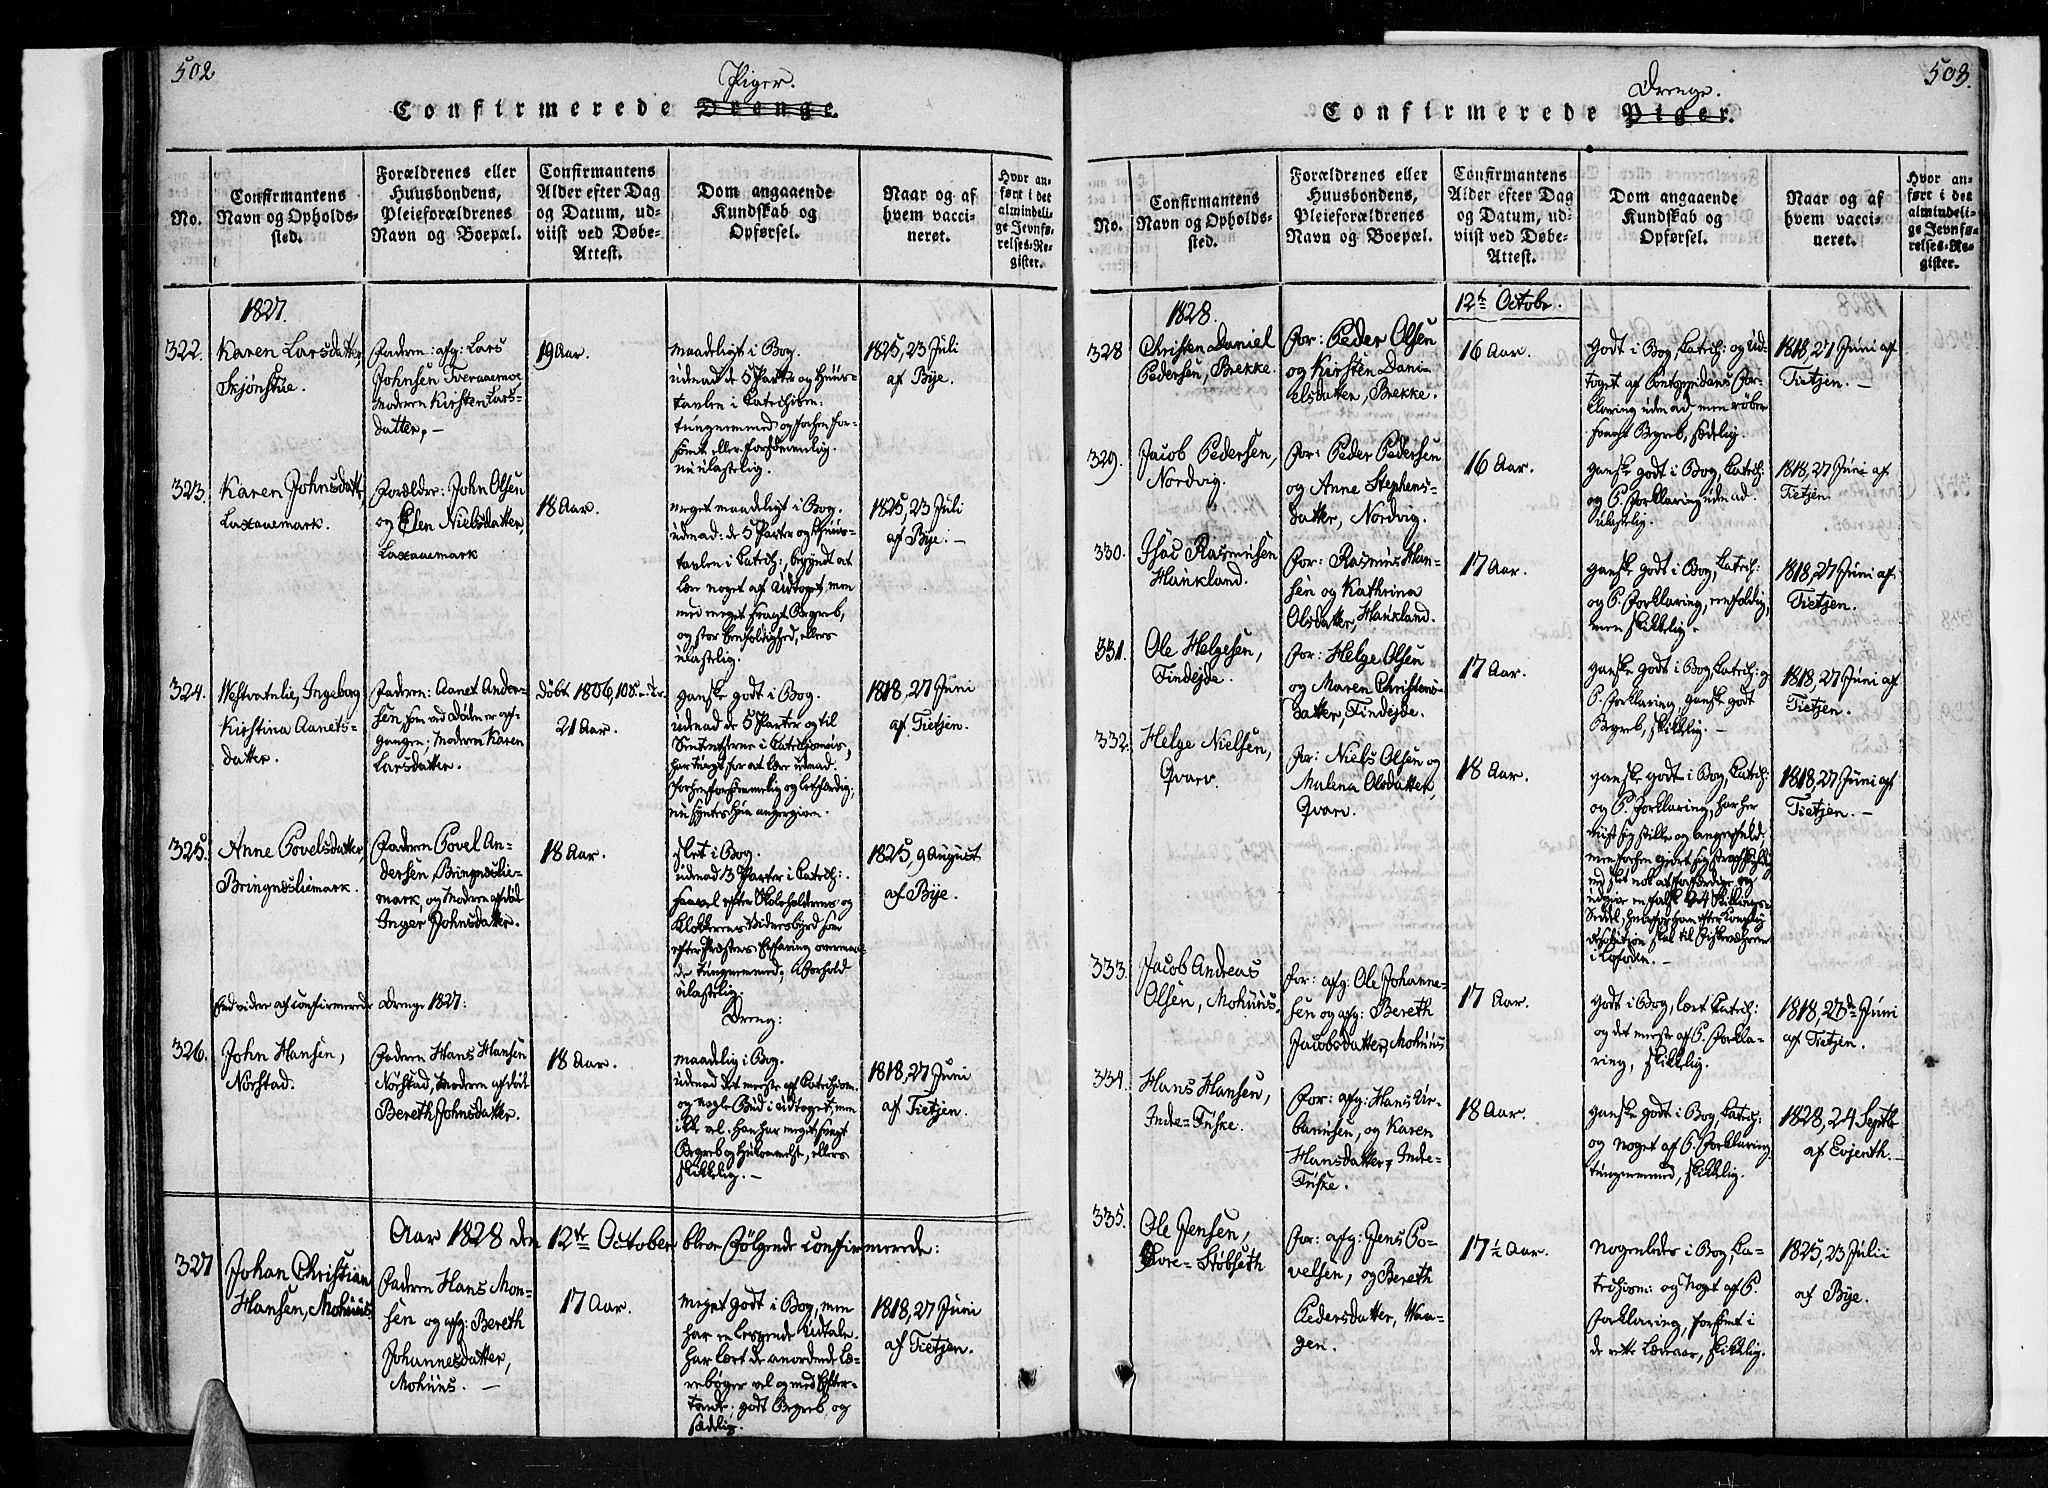 502
Piger.
Confirmerede Drenge.
No.
Confirmantens Navn og Opholds-sted.
Forældrenes eller Huusbondens, Pleieforældrenes Navn og Boepæl.
Confirmantens Alder efter Dag og Datum, ud-viist ved Døbe-Attest.
Dom angaaende Kundskab og Opførsel.
Naar og af hvem vacci-neret.
Hvor an-ført i det almindeli-ge Jevnfø-relses-Re-gister.
1827.
322.
Karen Larsdatter,
Skjönstue.
Faderen: afg: Lars
Johnsen Tveraaemoe,
Moderen Kirsten Lars-
datter, —
19 Aar.
maadeligt i Bog.
udenad de 5 Parter og Huus-
tavlen i Catechism:
tungnemmed og forhen for-
sømt
ulastelig.
1825, 23 Juli
af Bye.
323.
Karen Johnsdatt.
Laxaaemark.
Forældre: John Olsen
og Elen Nielsdatter,
Laxaaemark
18 Aar.
meget maadeligt i Bog.
udenad: de 5 Parter og Huus-
tavlen i Catech:, begyndt at
lære noget af Udtoget, men
med meget svagt Begreb,
og stor Eenfoldighed, ellers
ulastelig.
1825, 23 Juli
af Bye. —
324.
Westvatnlie, Ingeborg
Kirstina Aanets-
datter.
Faderen: Aanet Ander-
sen, som ved Døden er af-
gangen; Moderen Karen
Larsdatter.
døbt 1806,
21 Aar.
ganske godt i Bog.
udenad de 5 Parter og til
Sententserne i Catechismus,
har tungt for at lære udenad.
forhen forsømmelig og letfærdig,
nu synes hun angergiven.
1818, 27 Juni
af Tietjen.
325.
Anne Povelsdatter,
Bringnesliemark.
Faderen Povel An-
dersen, Bringneslie-
mark, og Moderen afdöd
Inger Johnsdatter.
18 Aar.
slet i Bog.
udenad 3 Parter i Catech:.
saavel efter Skoleholderens og
Klokkerens Vidnesbyrd som
efter Præstens Erfaring overmaa-
de tungnemmed; i Forhold
ulastelig.
1825, 9 August
af Bye.
Endvidere af confirmerede Drenge 1827:
Dreng:
326.
John Hansen,
Norstad.
Faderen Hans Hansen
Norstad, Moderen afdöd
Bereth Johnsdatter.
18 Aar.
maadelig i Bog.
udenad det meste af Catechism.
og nogle Bud i Udtoget, men
ikke vel. Han har meget svagt
Begreb og Hukommelse, ellers
skikkelig. —
1818, 27 Juni
af Tietjen.
Aar 1828 den 12te October bleve følgende confirmerede:
327
Johan Christian
Hansen, Mohuus.
Faderen Hans Mon-
sen og afg: Bereth
Johannesdatter,
Mohuus. —
17 Aar.
meget godt i Bog, men
har en lespende Udtale.
har lært de anordnede Læ-
rebøger vel og med Efter-
tanke; godt Begreb, og
sædelig.
1818, 27 Juni
af Tietjen.
503.
Drenge.
Confirmerede Piger.
No.
Confirmantens Navn og Opholds-sted.
Forældrenes eller Huusbondens, Pleieforældrenes Navn og Boepæl.
Confirmantens Alder efter Dag og Datum, ud-viist ved Døbe-Attest.
Dom angaaende Kundskab og Opførsel.
Naar og af hvem vacci-neret.
Hvor an-ført i det almindeli-ge Jevnfø-relses-Re-gister.
12te Octobr.
1828.
328
Christen Daniel
Pedersen, Brekke.
For: Peder Olsen
og Kirsten Dani-
elsdatter, Brekke.
16 Aar.
godt i Bog, Catech: og Ud-
toget af Pontoppidans For-
klaring udenad, men røber
svagt Begreb, sædelig.
1818, 27 Juni af
Tietjen. —
329.
Jacob Pedersen,
Nordvig.
For: Peder Pedersen
og Anne Stephens-
datter, Nordvig.
16 Aar.
ganske godt i Bog, Catech:
og P. Forklaring udenad.
ulastelig.
1818, 27 Juni af
Tietjen.
330.
Isac Rasmusen
Haukland.
For: Rasmus Han-
sen og Kathrina
Olsdatter, Haukland.
17 Aar.
ganske godt i Bog, Catech:
og P. Forklaring, eenfoldig,
men skikkelig.
1818, 27 Juni af
Tietjen.
331.
Ole Helgesen,
Tindejde.
For: Helge Olsen
og Maren Christens-
datter, Tindejde.
17 Aar.
ganske godt i Bog, Catech: og
P. Forklaring, ganske godt
Begreb, skikkelig. —
1818, 27 Juni af
Tietjen.
332.
Helge Nielsen,
Qvarv.
For: Niels Olsen og
Malena Olsdatter,
Qvarv.
18 Aar.
ganske godt i Bog, Catech:
og P. Forklaring, har her
viist sig stille og angerfuld,
men forhen gjort sig strafskyldig
ved
udgive en falsk 24 Skillings-
Seddel, hvorfor han efter Kongelig
Resolution skal til Fiskeværerne
i Lofoden. —
1818, 27 Juni af
Tietjen. —
333.
Jacob Andreas
Olsen, Mohuus.
For: afg: Ole Johanne-
sen og afg: Bereth
Jacobsdatter, Mohuus
17 Aar.
godt i Bog, lært Catech:
og det meste af P. Forkla-
ring, skikkelig.
1818, 27de Juni
af Tietjen.
334.
Hans Hansen,
Indre-Tuske.
For: afg: Hans Ur-
banusen, og Karen
Hansdatter, Indre-
Tuske.
18 Aar.
ganske godt i Bog, Catech:
og noget af P. Forklaring
tungnemmed, skikkelig.
1828, 24 Septb
af Evjenth. —
335.
Ole Jensen,
Øvre-Stöbseth
For: afg: Jens Po-
velsen, og Bereth
Pedersdatter, Waa-
gen.
17½ Aar.
nogenledes i Bog, Ca-
techism: og noget af P.
Forklaring, forsømt i
de rette Læreaar, skikkelig.
1825, 23 Julii
af Bye.